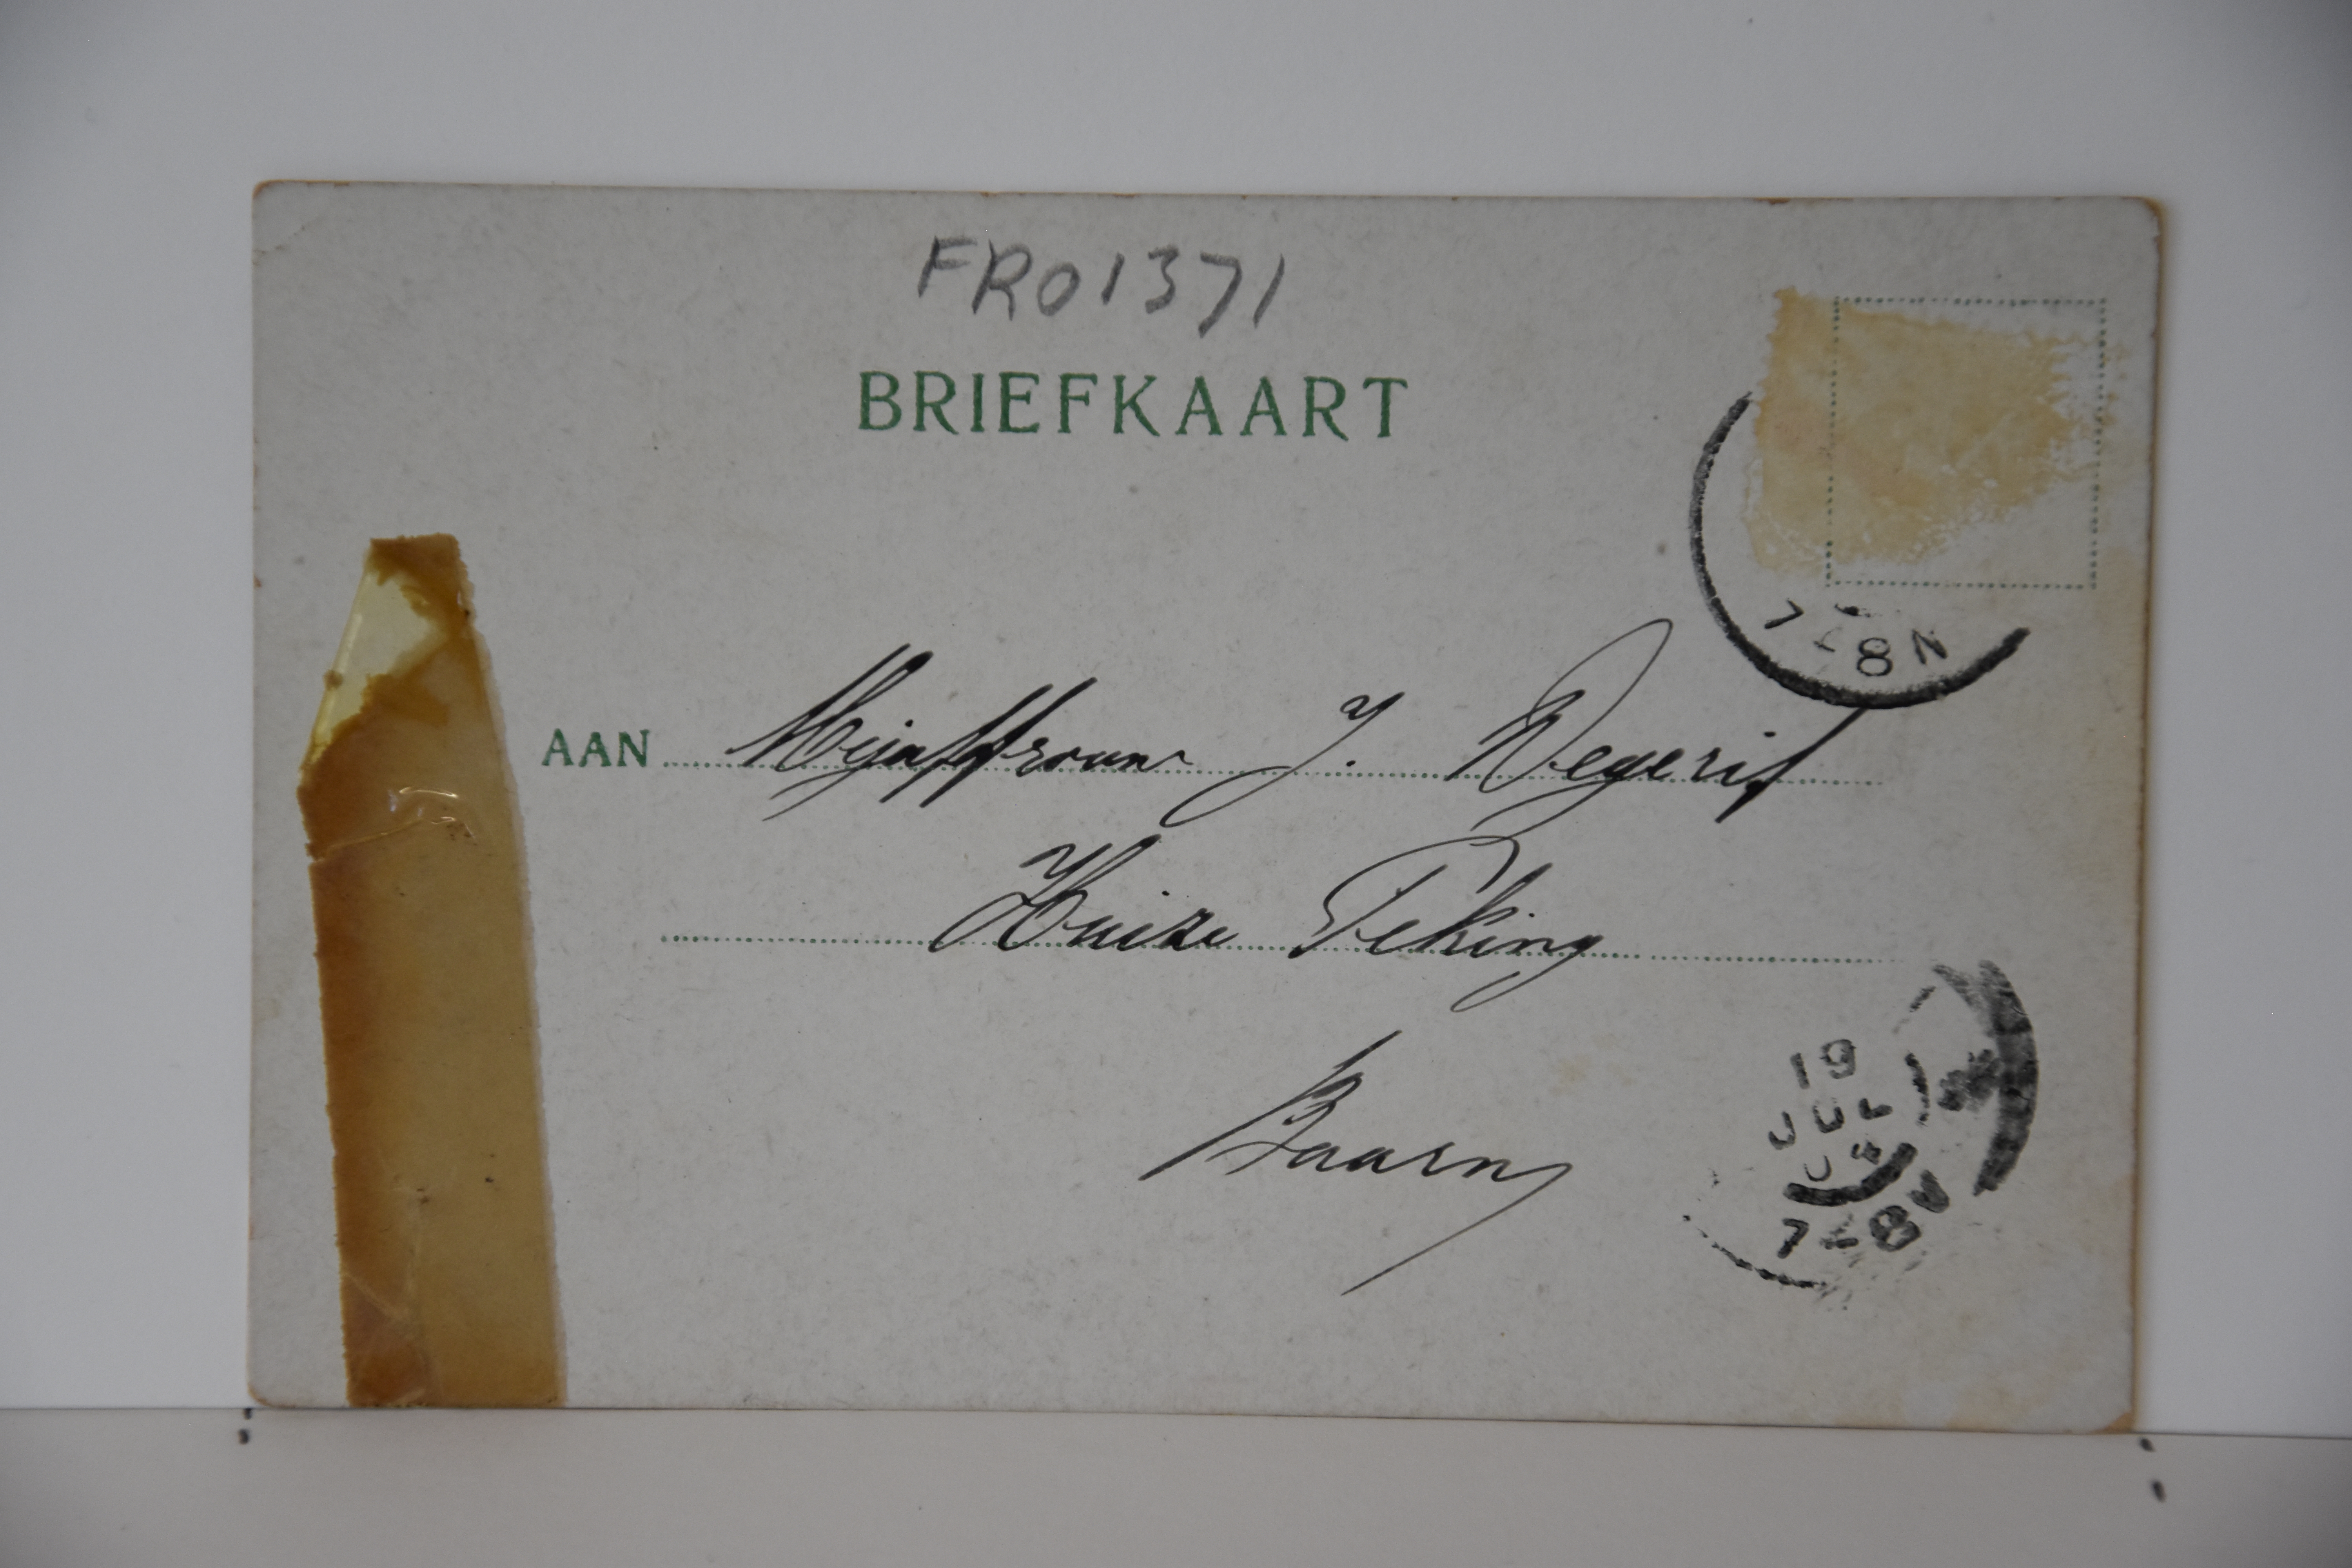 FR01371
BRIEFKAART
7-8N
AAN Mejuffrouw J. Wegerif
Huize Peking
Baarn
19
JUL
04
7-8V